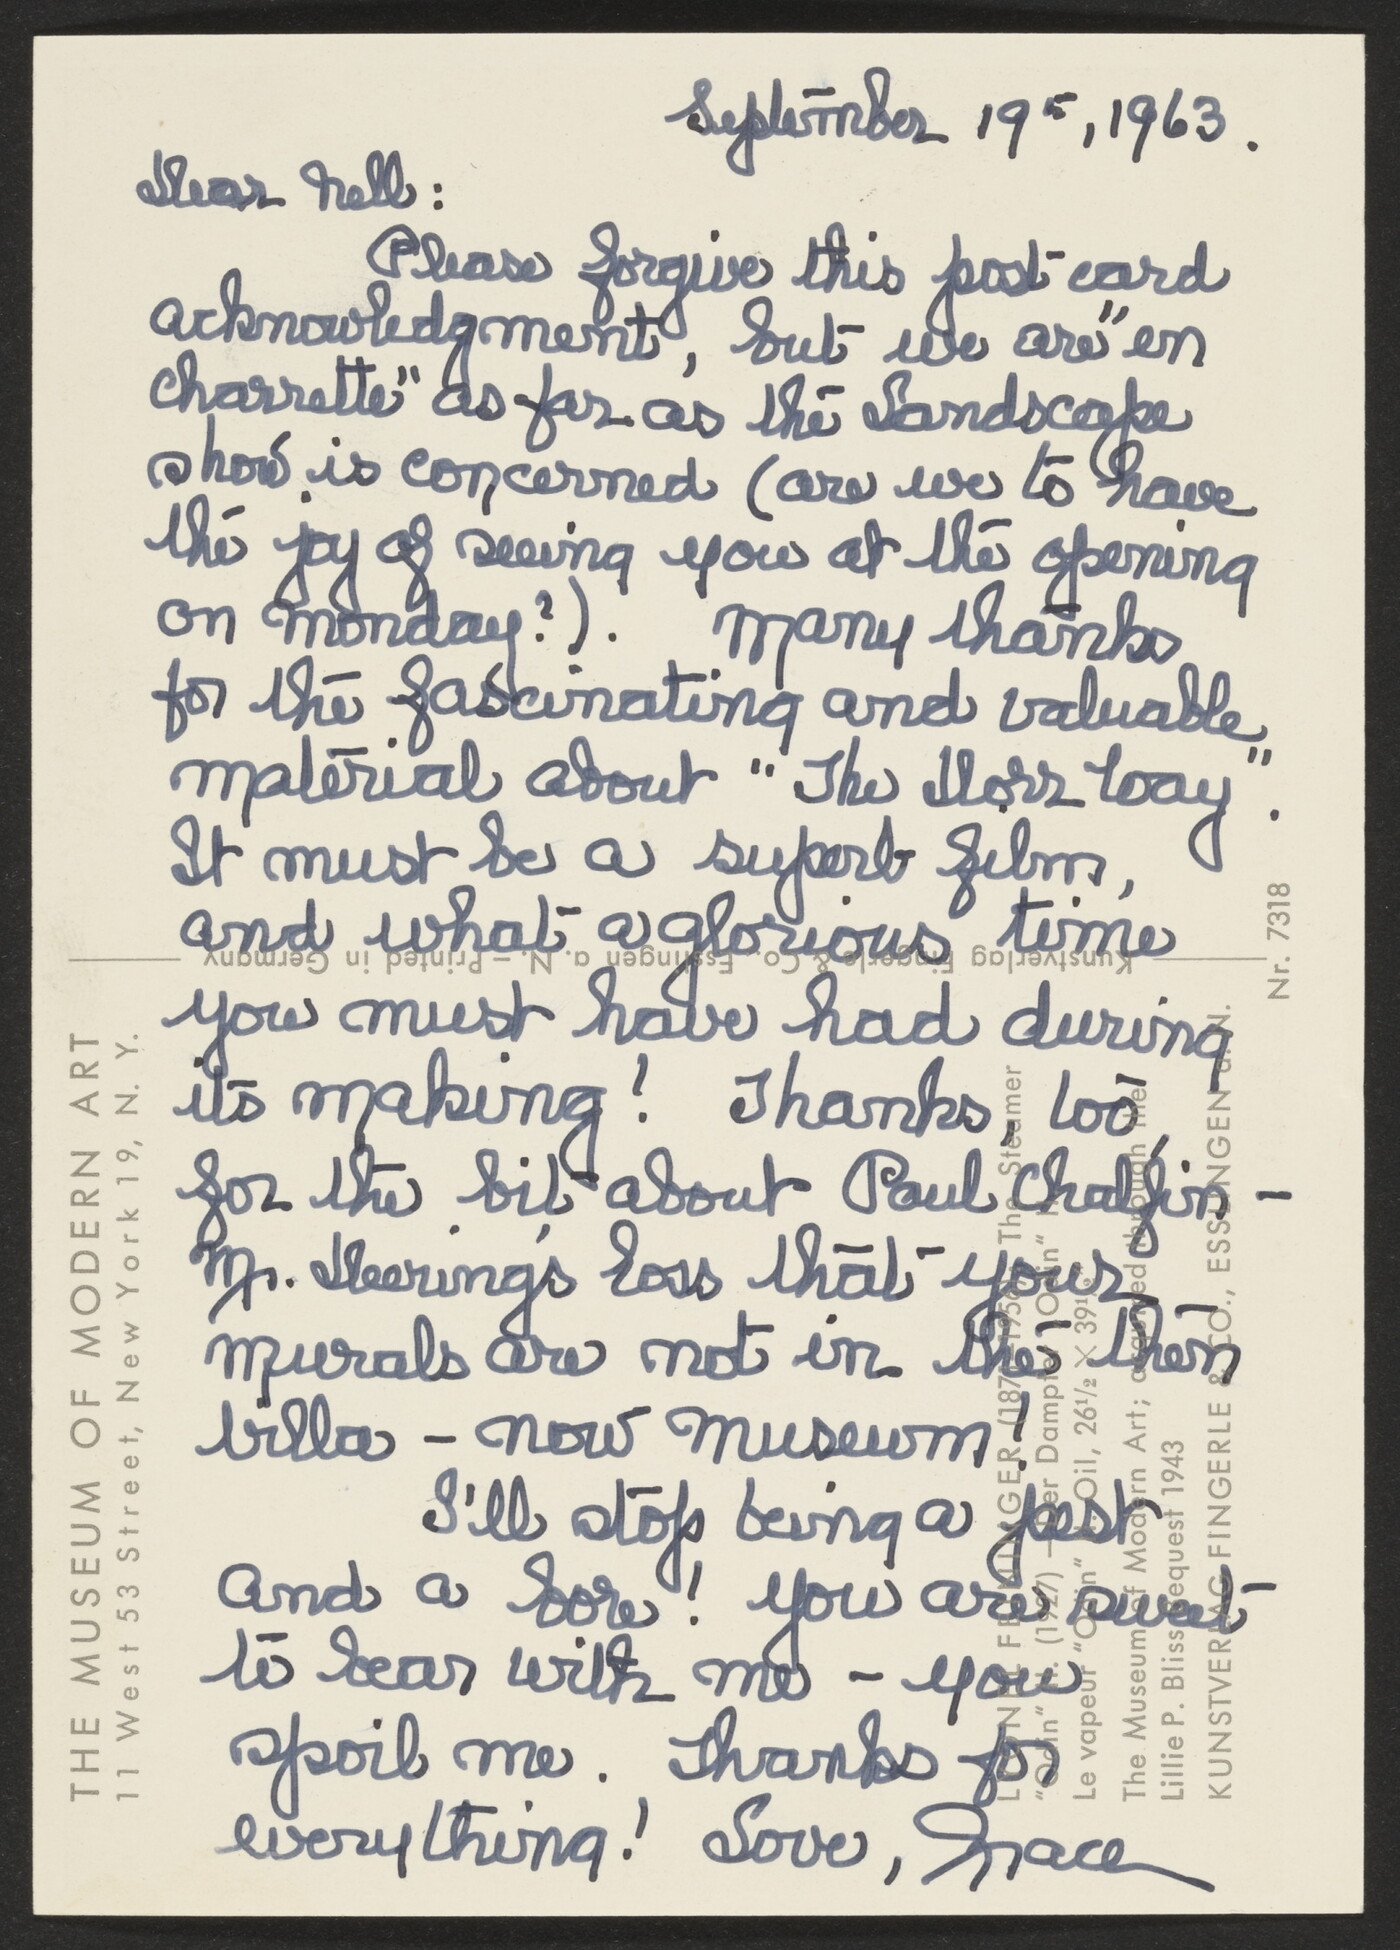 September 19th, 1963.
Dear Nell:
Please forgive this post card
acknowledgment, but we are "en
charrette" as far as the Landscape
show is concerned (are we to have
the joy of seeing you at the opening
on Monday?). Many thanks
for the fascinating and valuable
material about "The Dorr Way".
It must be a superb film,
and what a glorious time
you must have had during
its making! Thanks, too,
for the bit about Paul Chalfin -
Mr. Deering's loss that your
murals are not in the then
villa - now museum!
I'll stop being a pest
and a bore! You are sweet
to bear with me - you
spoil me. Thanks for
everything! Love, Grace
THE MUSEUM OF MODERN ART
11 West 53 Street, New York 19, N. Y.
Kunstverlag Fingerle & Co., Esslingen a. N. – Printed in Germany
Nr. 7318
LYONEL FEININGER (1871–1956) The Steamer
"Odin" II. (1927) — Der Dampfer "Odin" II.
Le vapeur "Odin" II. Oil, 26½ × 39½"
The Museum of Modern Art; acquired through the
Lillie P. Bliss Bequest 1943
KUNSTVERLAG FINGERLE & CO., ESSLINGEN a. N.